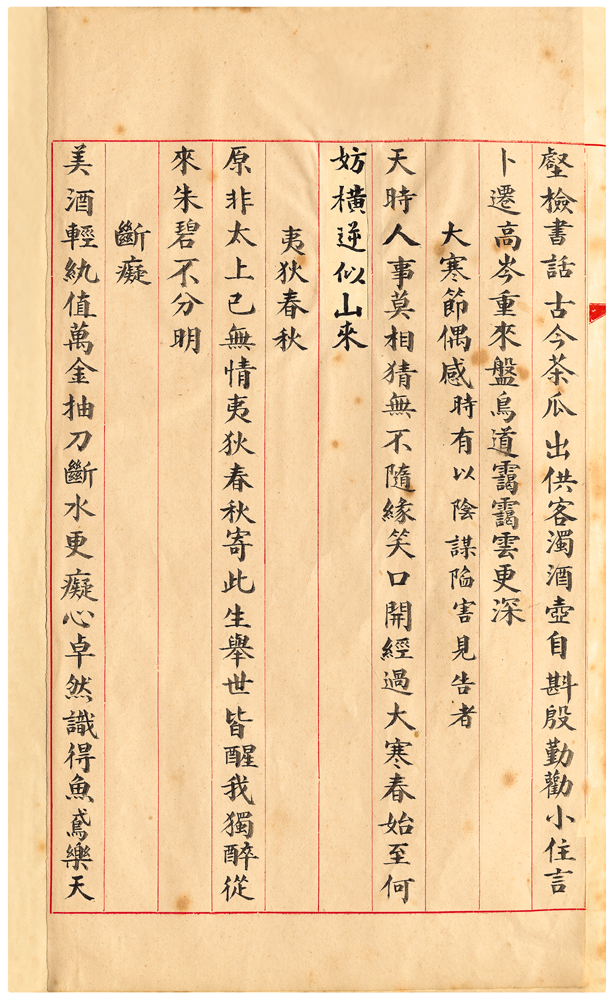 壑檢書話古今茶瓜出供客濁酒壺自斟殷勤勸小住言
卜遷高岑重來盤鳥道靄靄雲更深
大寒節偶感時有以陰謀陷害見告者
天時人事莫相猜無不隨緣笑口開經過大寒春始至何
妨橫逆似山來
夷狄春秋
原非太上已無情夷狄春秋寄此生舉世皆醒我獨醉從
來朱碧不分明
斷癡
美酒輕紈值萬金抽刀斷水更癡心卓然識得魚鳶樂天